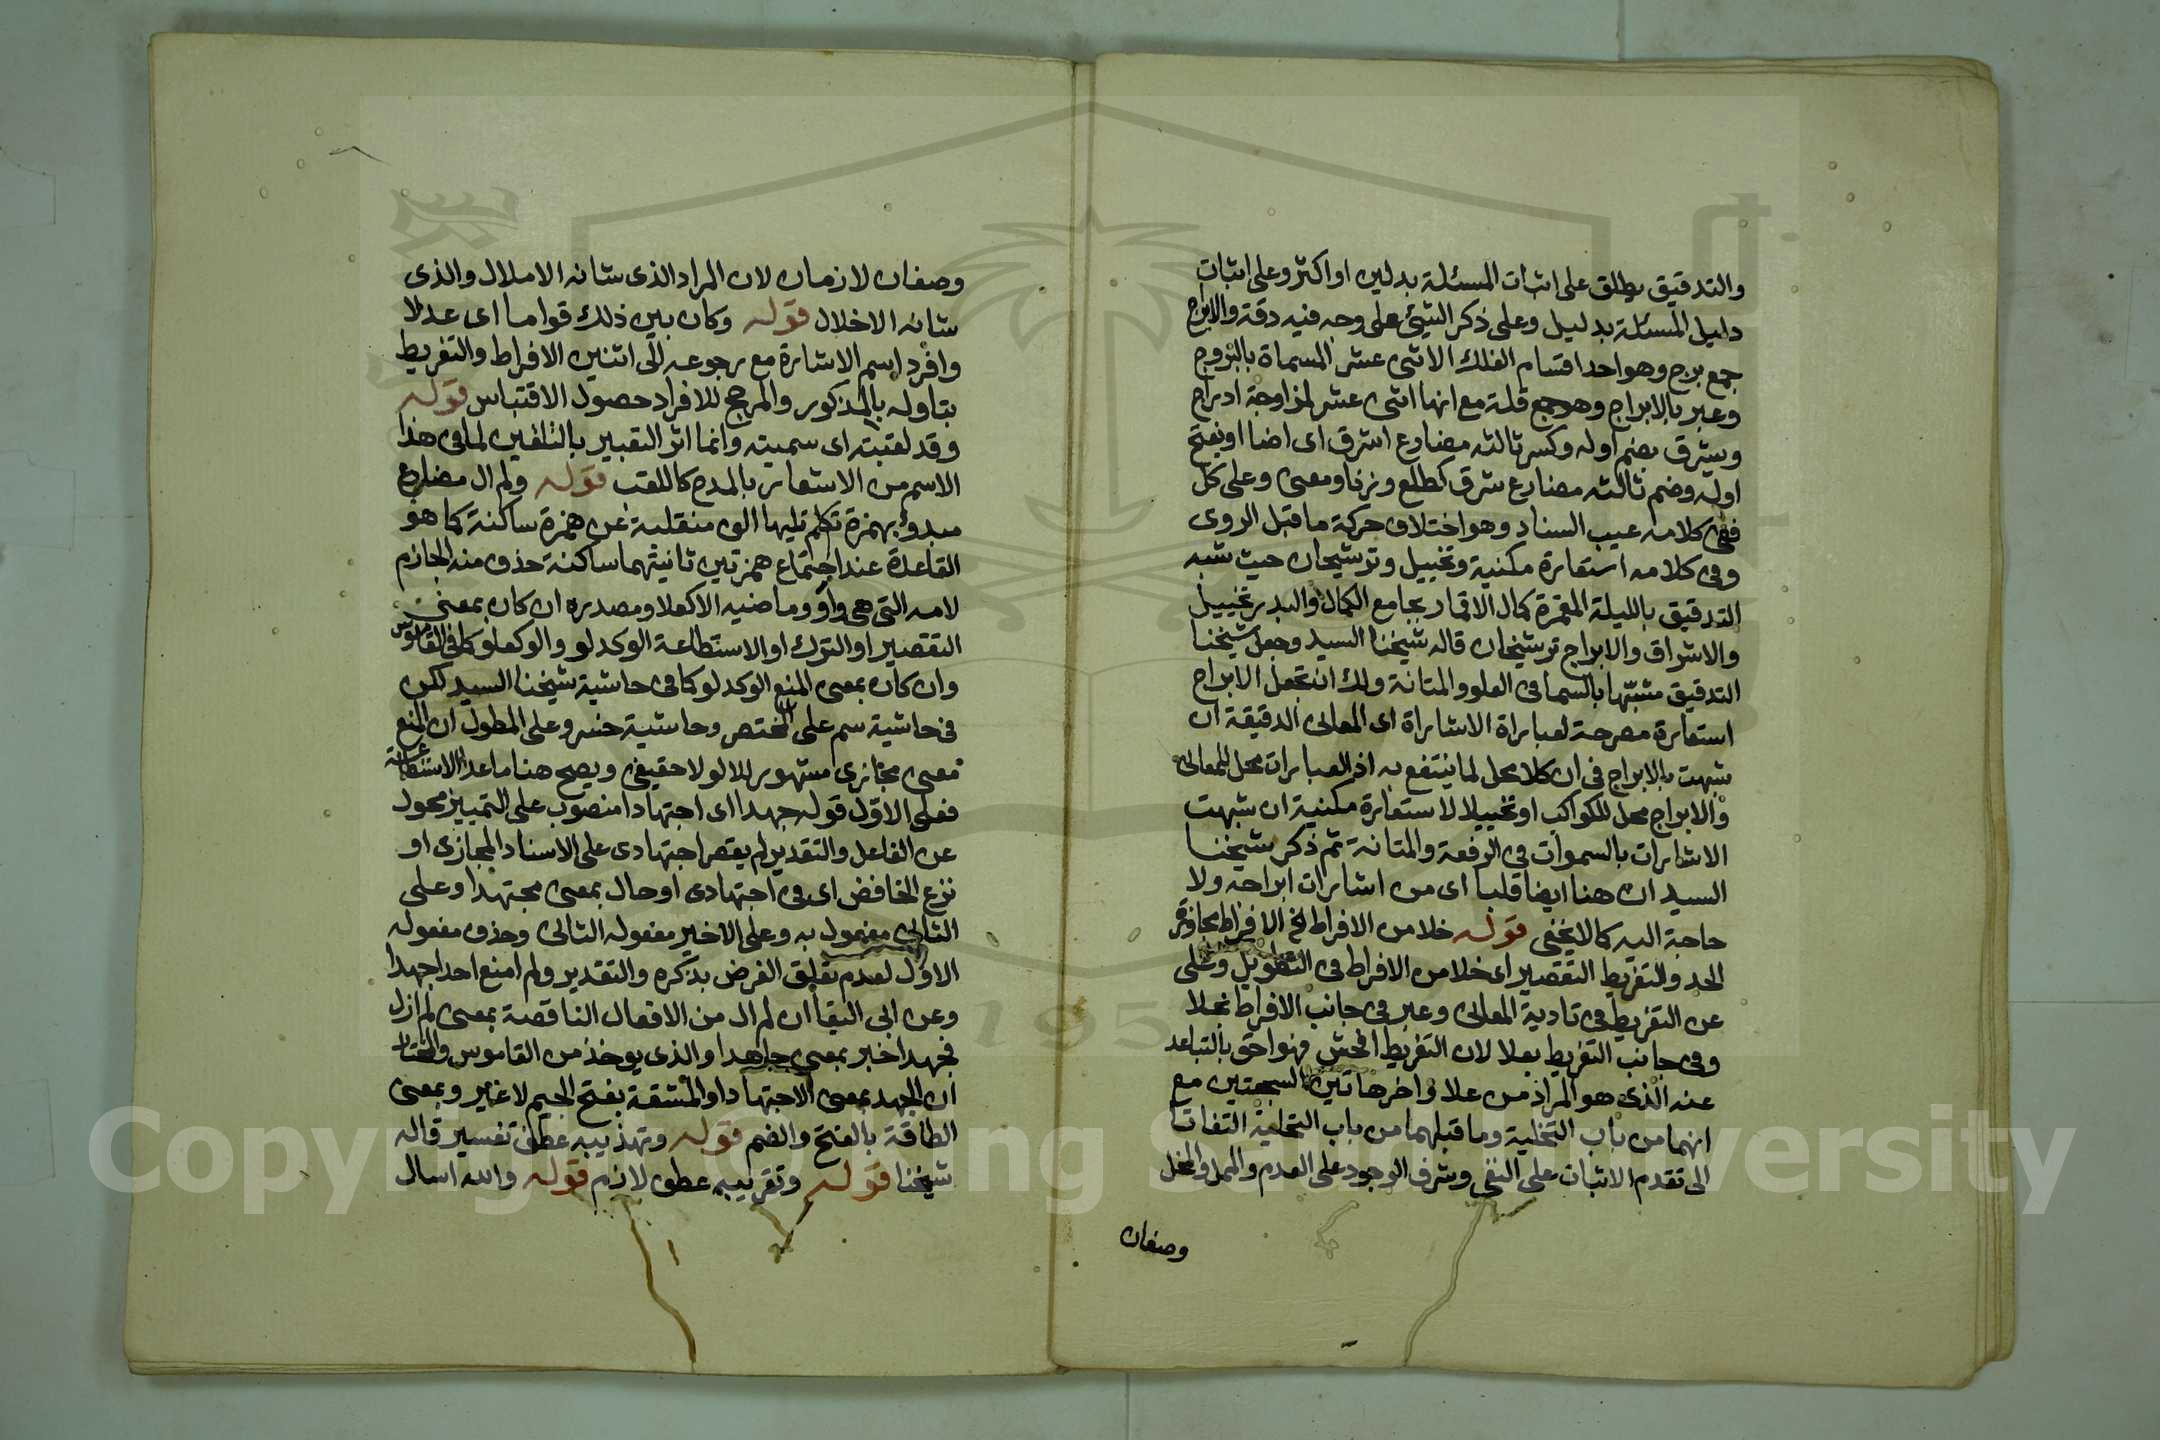 والتدقيق يطلق على اثبات المسئلة بدليلين او اكثر وعلى اثبات
دليل المسئلة بدليل وعلى ذكر الشيئ على وجه فيه دقة والابراج
جمع برج وهو احد اقسام الفلك الاثنى عشر المسماة بالبروج
وعبر بالابراج وهو جمع قلة مع انها اثنى عشر لمزاوجة ادراج
ويشرق بضم اوله وكسر ثالثه مضارع اشرق اى اضا او بفتح
اوله وضم ثالثه مضارع شرق كطلع وزنا ومعنى وعلى كل
ففى كلامه عيب السناد وهو اختلاف حركة ما قبل الروى
وفى كلامه استعارة مكنية وتخييل وترشيحان حيث شبه
التدقيق بالليلة المقمرة كمال الاقمار بجامع الكمال والبدر تخييل
والاشراق والابراج ترشيحان قاله شيخنا السيد وجعل شيخنا
التدقيق مشبها بالسما فى العلو والمتانة ولك ان تجعل الابراج
استعارة مصرحة لعباراة الاشاراة اى المعانى الدقيقة ان
شبهت بالابراج فى ان كلا محل لما ينتفع به اذ العبارات محل للمعانى
والابراج محل للكواكب او تخييلا لاستعارة مكنية ان شبهت
الاشارات بالسموات فى الرفعة والمتانة ثم ذكر شيخنا
السيد ان هنا ايضا قلبا اى من اشارات ابراجه ولا
حاجة اليه كما لا يخفى قوله خلا من الافراط الخ الافراط مجاوزة
الحد والتفريط التقصير اى خلا من الافراط فى التطويل وعلى
عن التفريط فى تادية المعانى وعبر فى جانب الافراط بخلا
وفى جانب التفريط بعلا لان التفريط افحش فهو احق بالتباعد
عنه الذى هو المراد من علا واخر هاتين السجعتين مع
انهما من باب التخلية وما قبلهما من باب التحلية التفاتا
الى تقدم الاثبات على النفى وشرف الوجود على العدم والممل والمخل
وصفان
وصفان لازمان لان المراد الذى شانه الاملال والذى
شانه الاخلال قوله وكان بين ذلك قواما اى عدلا
وافرد اسم الاشارة مع رجوعه الى اثنين الافراط والتفريط
بتاوله بالمذكور والمرجح للافراد حصول الاقتباس قوله
وقد لقبته اى سميته وانما اثر التعبير بالتلقين لما فى هذا
الاسم من الاشعار بالمدح كاللقب قوله ولم ال مضارع
مبدوء بهمزة تكلم تليها الف منقلبة عن همزة ساكنة كما هو
القاعدة عند اجتماع همزتين ثانيتهما ساكنة حذف منه الجازم
لامه التى هى واو وماضيه الا كعلا ومصدره ان كان بمعنى
التقصير او الترك او الاستطاعة الو كدلو والو كعلو كما فى القاموس
وان كان بمعنى المنع الو كدلو كما فى حاشية شيخنا السيد لكن
فى حاشية سم على المختصر وحاشية خسرو على المطول ان المنع
معنى مجازى مشهور للالو لا حقيقى ويصح هنا ما عدا الاستطاعة
فعلى الاول قوله جهدا اى اجتهادا منصوب على التمييز محول
عن الفاعل والتقدير لم يقصر اجتهادى على الاسناد المجازى او
نزع الخافض اى فى اجتهادى او حال بمعنى مجتهدا وعلى
الثانى مفعول به وعلى الاخير مفعوله الثانى وحذف مفعوله
الاول لعدم تعلق الغرض بذكره والتقدير ولم امنع احدا جهدا
وعن ابى البقا ان لم ال من الافعال الناقصة بمعنى لم ازل
فجهدا خبر بمعنى جاهدا والذى يوخذ من القاموس والمختار
ان الجهد بمعنى الاجتهاد او المشقة بفتح الجيم لا غير وبمعنى
الطاقة بالفتح والضم قوله وتهذيبه عطف تفسير قاله
شيخنا قوله وتقريبه عطف لازم قوله والله اسال
Copyright © King Saud University
195